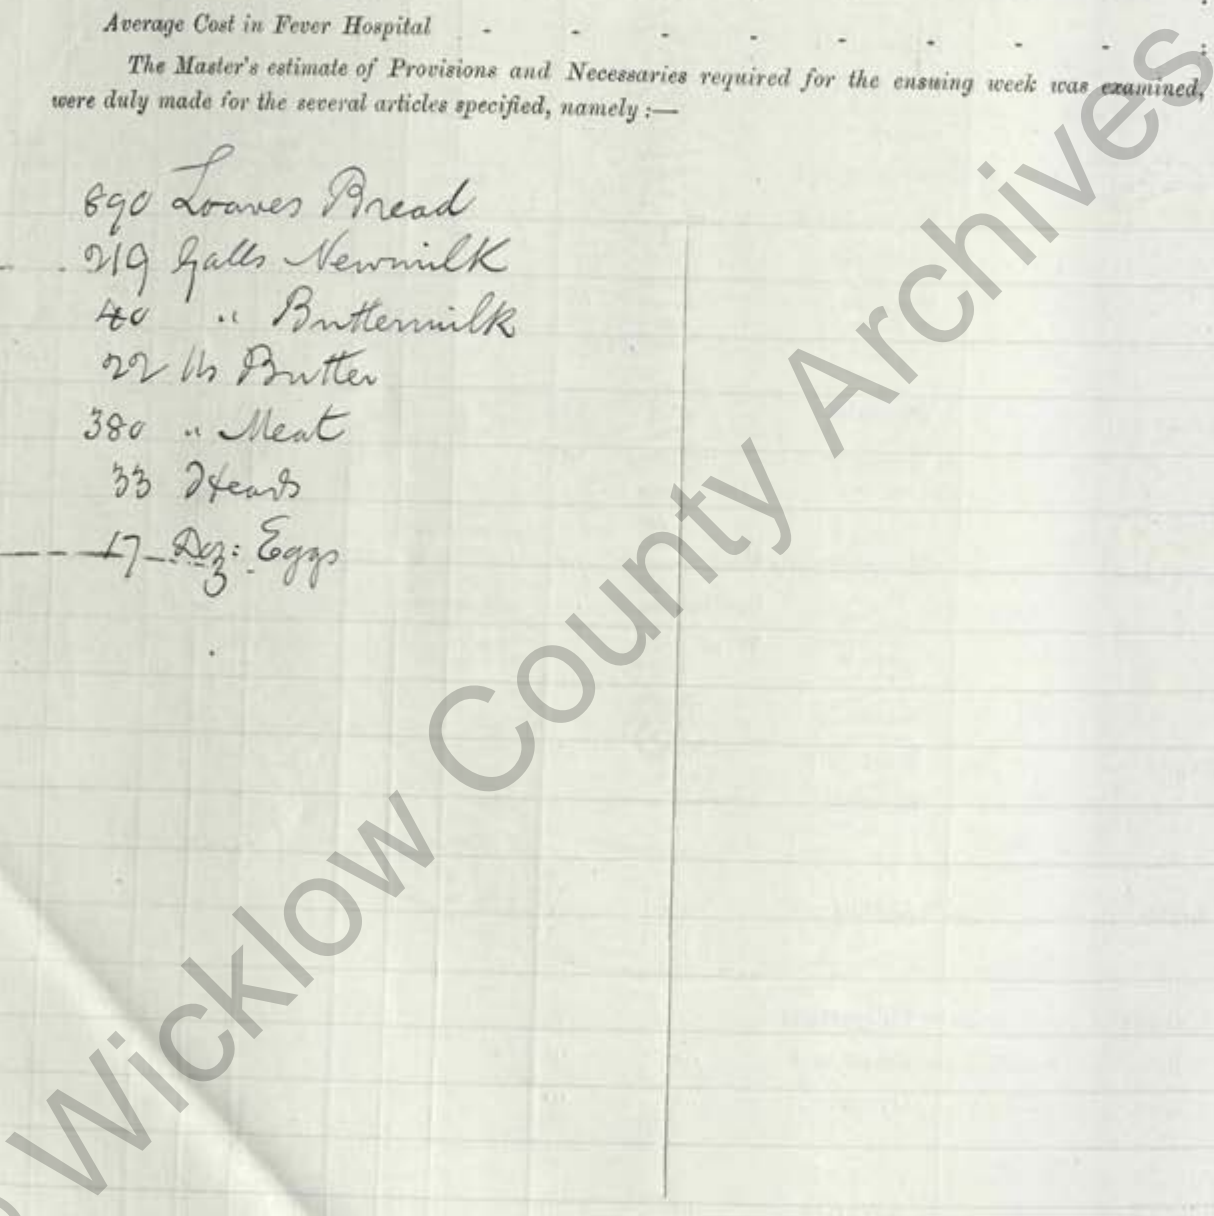 Average Cost in Fever Hospital - - - - - - - - :
The Master's estimate of Provisions and Necessaries required for the ensuing week was examined,
were duly made for the several articles specified, namely :—
890 Loaves Bread
219 Galls Newmilk
40 " Buttermilk
22 lbs Butter
380 " Meat
33 Heads
17 Doz: Eggs
Wicklow County Archives